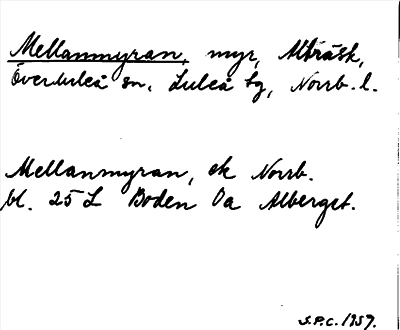 Mellanmyran, myr, Alträsk,
Överluleå sn, Luleå tg, Norrb. l.
Mellanmyran, ek Norrb.
bl. 25 L Boden Oa Alberget.
S.P.C. 1959.